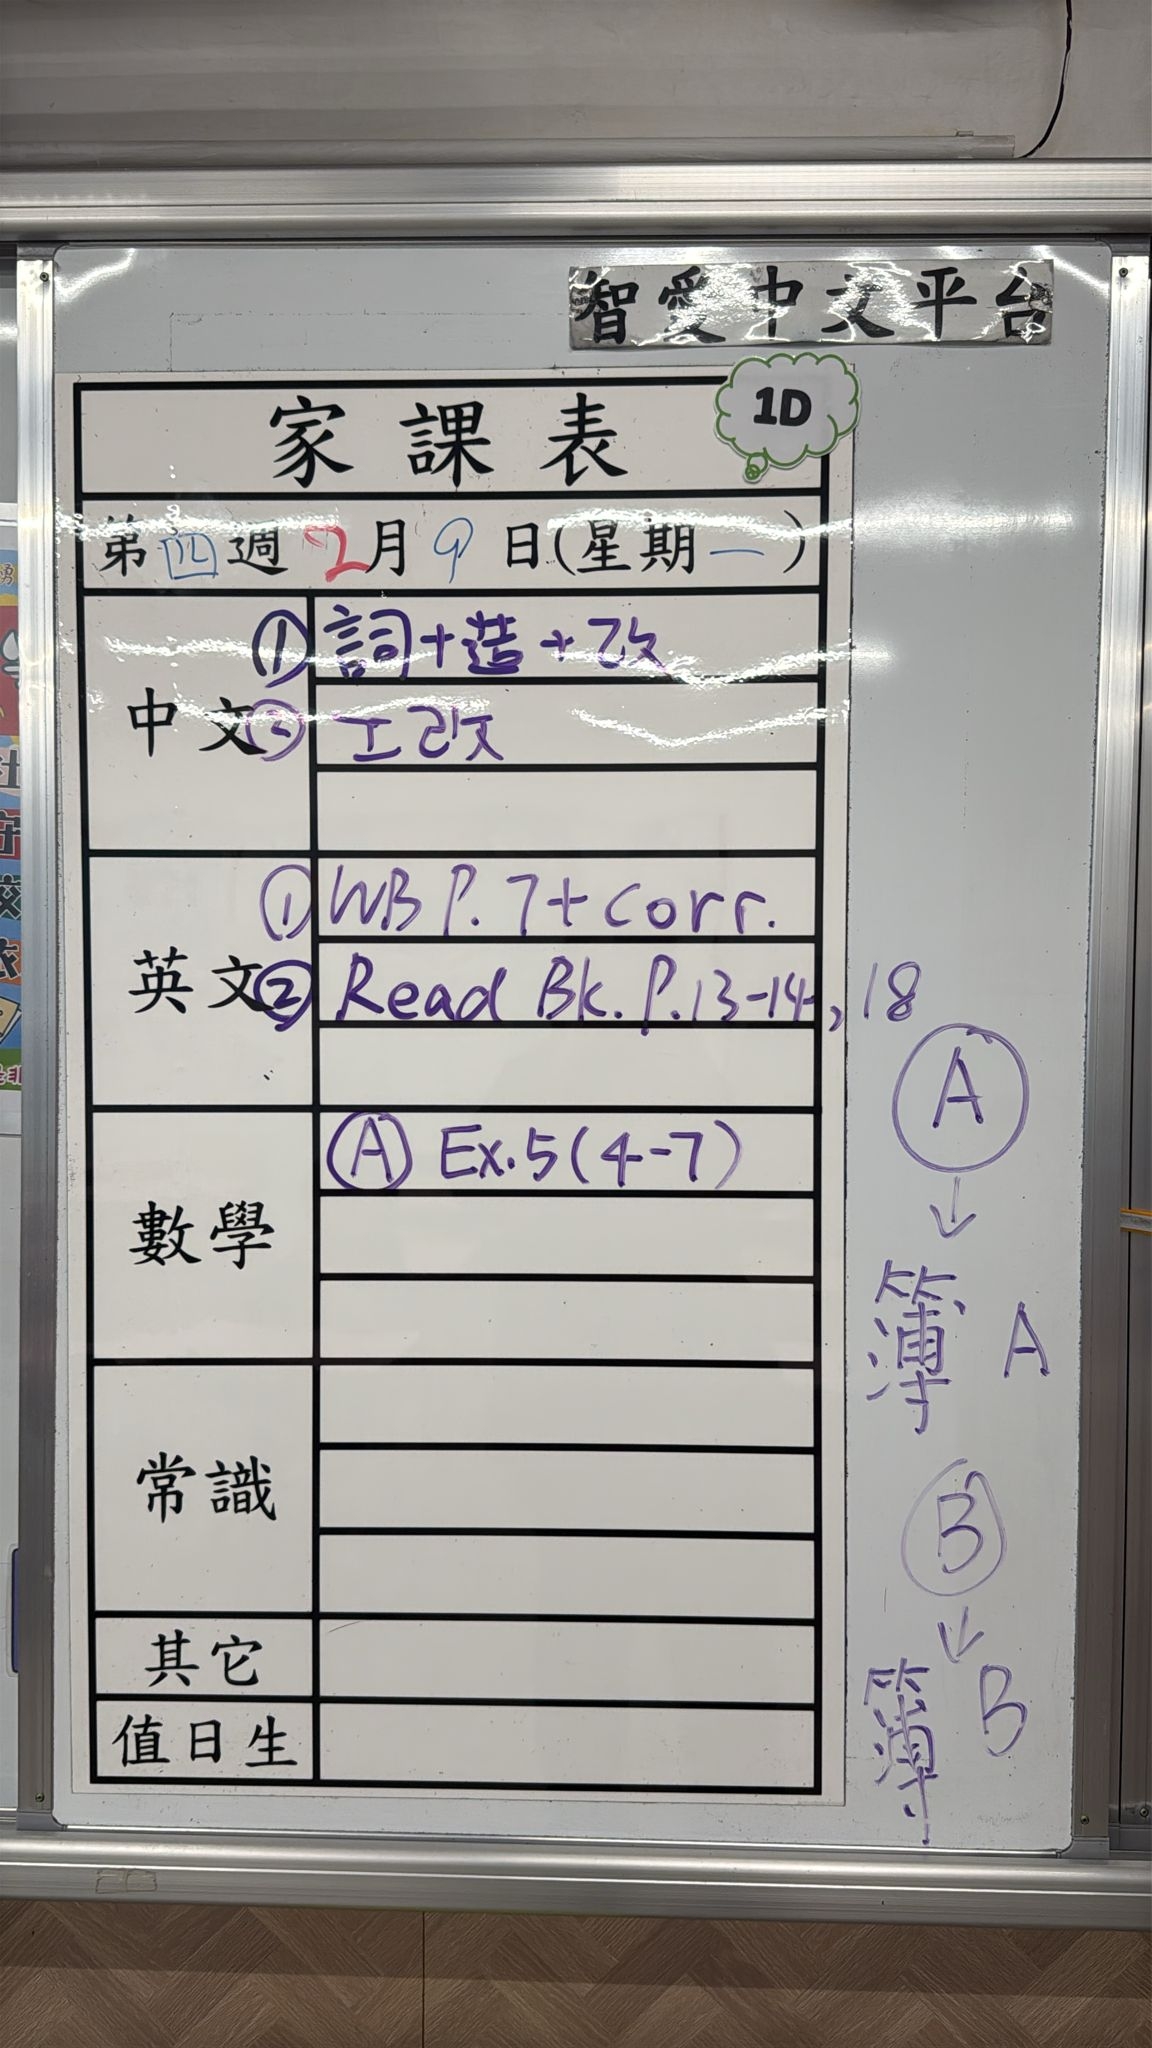 智愛中文平台
家課表
1D
第四週 2月9日(星期一)
中文
① 詞+造+改
② 工改
英文
① WB P. 7 + corr.
② Read Bk. P.13-14, 18
數學
Ⓐ Ex.5(4-7)
常識
其它
值日生
Ⓐ
↓
簿 A
Ⓑ
↓
簿 B